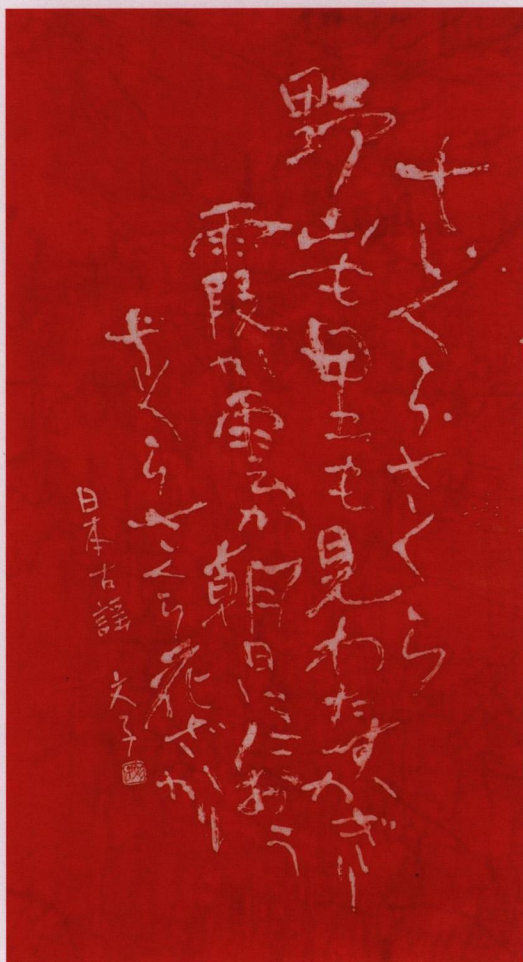 さくらさくら
野山も里も見わたすかぎり
霞か雲か朝日ににおう
さくらさくら花ざかり
日本古謡 文子